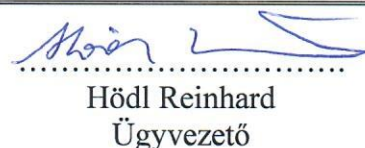 Hödl Reinhard
Ügyvezető